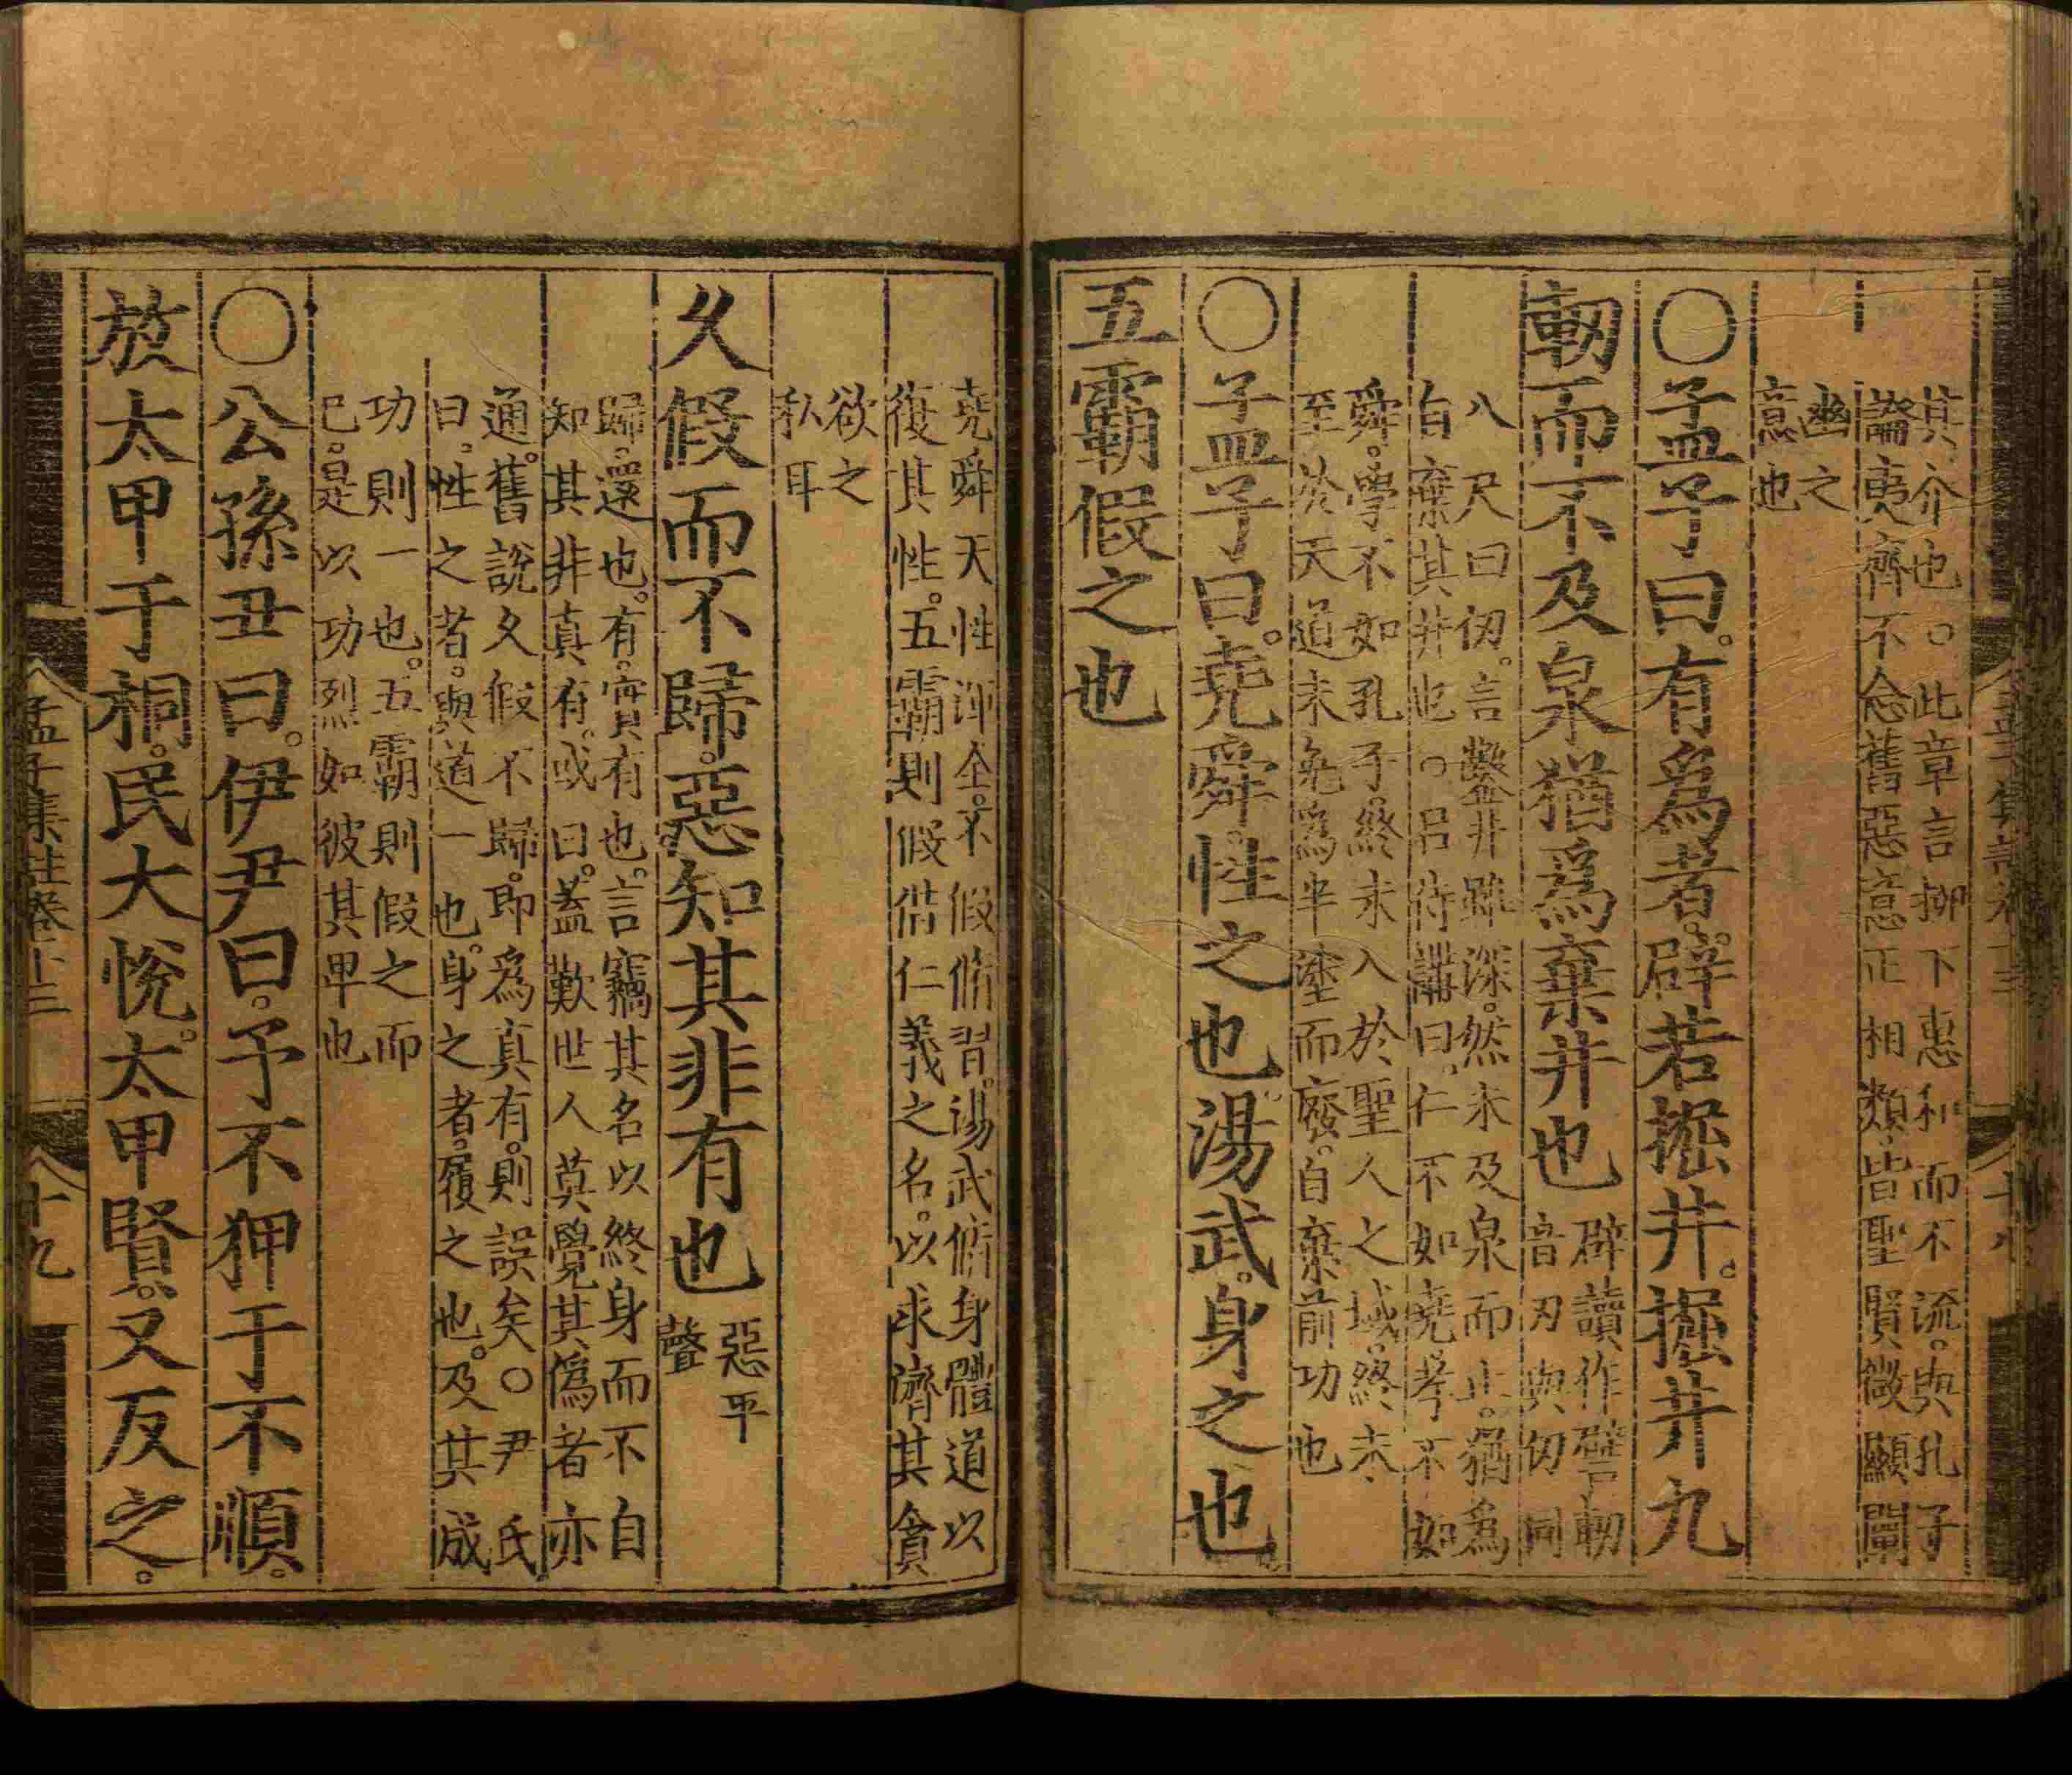 其介也。○此章言柳下惠和而不流。與孔子
論夷齊不念舊惡意正相類。皆聖賢微顯闡
幽之
意也
○孟子曰。有爲者。辟若掘井。掘井九
軔而不及泉猶爲棄井也
辟讀作譬軔
音刃與仞同
八尺曰仞。言鑿井雖深。然未及泉而止。猶爲
自棄其井也。○呂侍講曰。仁不如堯。孝不如
舜。學不如孔子。終未入於聖人之域。終未
至於天道未免爲半塗而廢。自棄前功也
○孟子曰。堯舜。性之也湯武。身之也。
五霸假之也
堯舜天性渾全。不假脩習。湯武脩身體道以
復其性。五霸則假借仁義之名。以求濟其貪
欲之
私耳
久假而不歸。惡知其非有也
惡平
聲
歸。還也。有。實有也。言竊其名以終身而不自
知其非真有。或曰。蓋歎世人莫覺其僞者亦
通。舊說久假不歸。即爲真有。則誤矣○尹氏
曰。性之者。與道一也。身之者。履之也。及其成
功則一也。五霸則假之而
已。是以功烈如彼其卑也
○公孫丑曰。伊尹曰。予不狎于不順。
放太甲于桐。民大悅。太甲賢。又反之。
孟子集註卷十三
十九